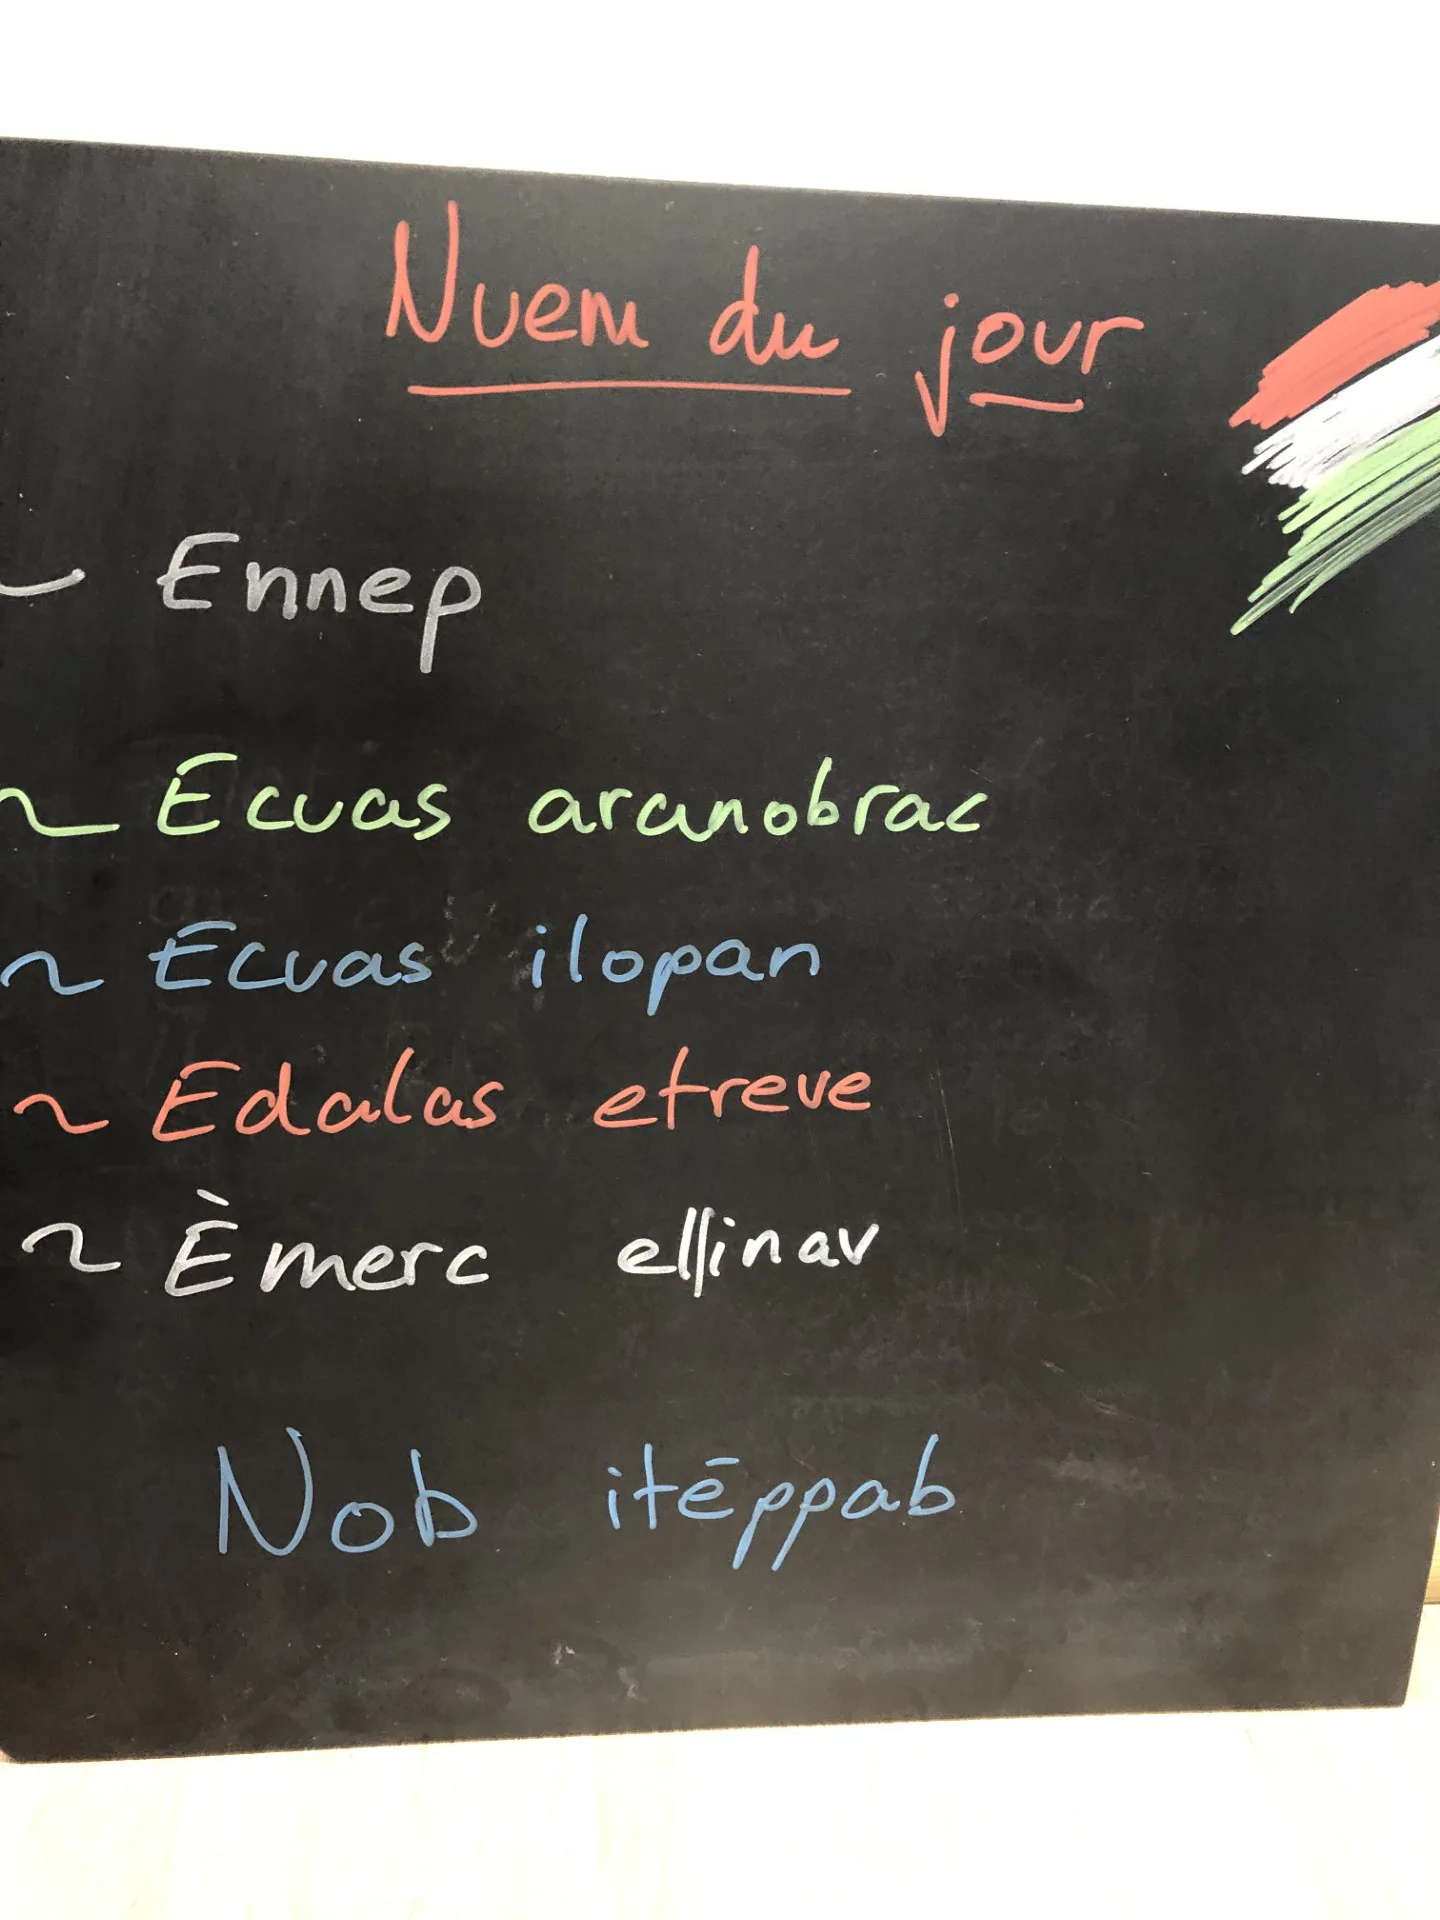 Nuem du jour
~ Ennep
~ Ecuas aranobrac
~ Ecuas ilopan
~ Edalas etreve
~ Èmerc ellinav
Nob itēppab